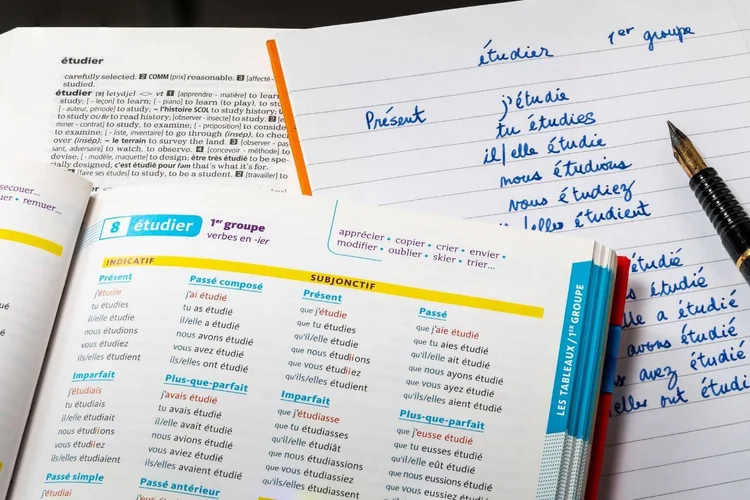 étudier
carefully selected. 2 COMM [prix] reasonable. 3 [affecté -
studied.
étudier [9] [etydje] <> vt 1 [apprendre - matière] to learn
study; [- leçon] to learn; [- piano] to learn (to play), to st
[- auteur, période] to study; ~ l'histoire SCOL to study history; U
to study ou Br to read history; [observer - insecte] to study. 2
miner - contrat] to study, to examine; [- proposition] to conside
to examine; [- liste, inventaire] to go through (insép), to chec
over (insép); ~ le terrain to survey the land. 3 [observer - pas-
sant, adversaire] to watch, to observe. 4 [concevoir - méthode] to
devise; [- modèle, maquette] to design: être très étudié to be spe-
ially designed, c'est étudié pour fam that's what it's for.
[faire ses études] to study, to be a student. 2 [travailler] to
étudier 1er groupe
Présent
j'étudie
tu étudies
il/elle étudie
nous étudions
vous étudiez
/elles étudient
étudié
s étudié
lle a étudié
avons étudié
s avez étudié
elles ont étudi
secouer...
uer • remuer...
8 étudier
1er groupe
verbes en -ier
apprécier • copier • crier • envier •
modifier • oublier • skier • trier...
INDICATIF
Présent
j'étudie
tu étudies
il/elle étudie
nous étudions
vous étudiez
ils/elles étudient
Imparfait
j'étudiais
tu étudiais
il/elle étudiait
nous étudiions
vous étudiiez
ils/elles étudiaient
Passé simple
j'étudiai
Passé composé
j'ai étudié
tu as étudié
il/elle a étudié
nous avons étudié
vous avez étudié
ils/elles ont étudié
Plus-que-parfait
j'avais étudié
tu avais étudié
il/elle avait étudié
nous avions étudié
vous aviez étudié
ils/elles avaient étudié
Passé antérieur
j'eus étudié
SUBJONCTIF
Présent
que j'étudie
que tu étudies
qu'il/elle étudie
que nous étudiions
que vous étudiiez
qu'ils/elles étudient
Imparfait
que j'étudiasse
que tu étudiasses
qu'il/elle étudiât
que nous étudiassions
que vous étudiassiez
qu'ils/elles étudiassent
Passé
que j'aie étudié
que tu aies étudié
qu'il/elle ait étudié
que nous ayons étudié
que vous ayez étudié
qu'ils/elles aient étudié
Plus-que-parfait
que j'eusse étudié
que tu eusses étudié
qu'il/elle eût étudié
que nous eussions étudié
que vous eussiez étudié
LES TABLEAUX / 1ER GROUPE